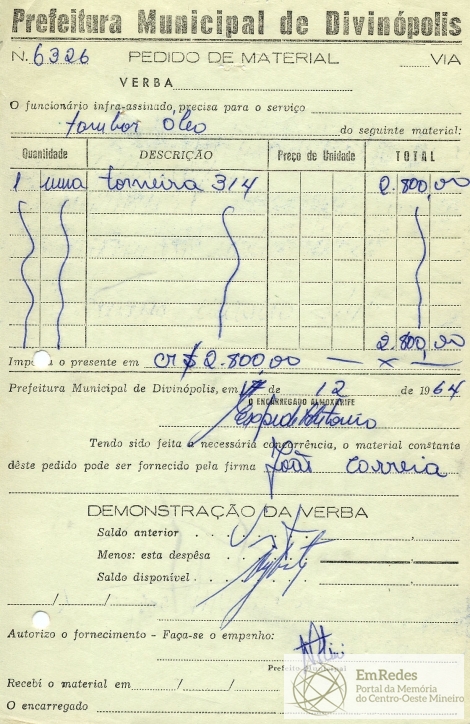 Prefeitura Municipal de Divinópolis
N. 6326 PEDIDO DE MATERIAL VIA
VERBA
O funcionário infra-assinado, precisa para o serviço
tambor óleo do seguinte material:
Quantidade DESCRIÇÃO Preço de Unidade TOTAL
1 uma torneira 3/4 2.800,00
2.800,00
o presente em CR$ 2.800,00 — x —
Prefeitura Municipal de Divinópolis, em 17 de 12 de 1964
O ENCARREGADO ALMOXARIFE
Tendo sido feita a necessária concorrência, o material constante
dêste pedido pode ser fornecido pela firma João Correia
DEMONSTRAÇÃO DA VERBA
Saldo anterior . . .
Menos: esta despêsa .
Saldo disponível . .
/ /
Autorizo o fornecimento - Faça-se o empenho:
Prefeito Municipal
Recebí o material em / /
O encarregado
EmRedes
Portal da Memória
do Centro-Oeste Mineiro